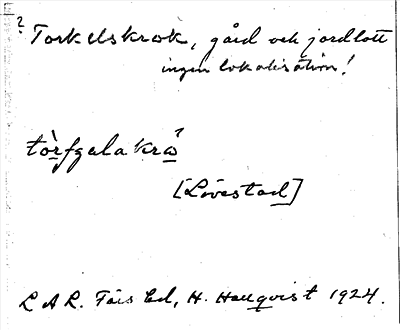 ? Torkelskrok, gård och jordlott
ingen lokalisation!
tòrfgulakrω̲?
[Lövestad]
L A L. Färs hd, H. Hallqvist 1924.